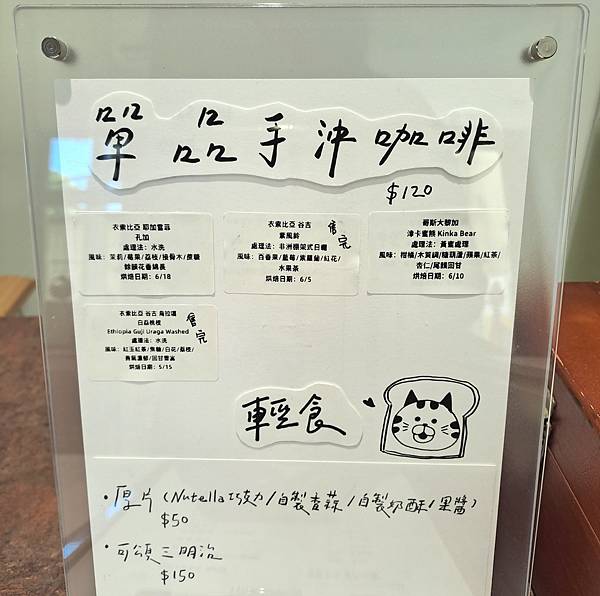 單品手沖咖啡
$120
衣索比亞 耶加雪菲
孔加
處理法：水洗
風味：茉莉/莓果/荔枝/接骨木/蔗糖
餘韻花香綿長
烘焙日期：6/18
衣索比亞 谷吉
紫風鈴
處理法：非洲棚架式日曬
風味：百香果/藍莓/紫羅蘭/紅花/
水果茶
烘焙日期：6/5
售完
哥斯大黎加
津卡蜜熊 Kinka Bear
處理法：黃蜜處理
風味：柑橘/木質調/糖葫蘆/蘋果/紅茶/
杏仁/尾韻回甘
烘焙日期：6/10
衣索比亞 谷吉 烏拉嘎
白焱桃枝
Ethiopia Guji Uraga Washed
處理法：水洗
風味：紅玉紅茶/焦糖/白花/荔枝/
香氣濃郁/回甘豐富
烘焙日期：5/15
售完
輕食
・厚片（Nutella巧克力/自製香蒜/自製奶酥/果醬）
$50
・可頌三明治
$150